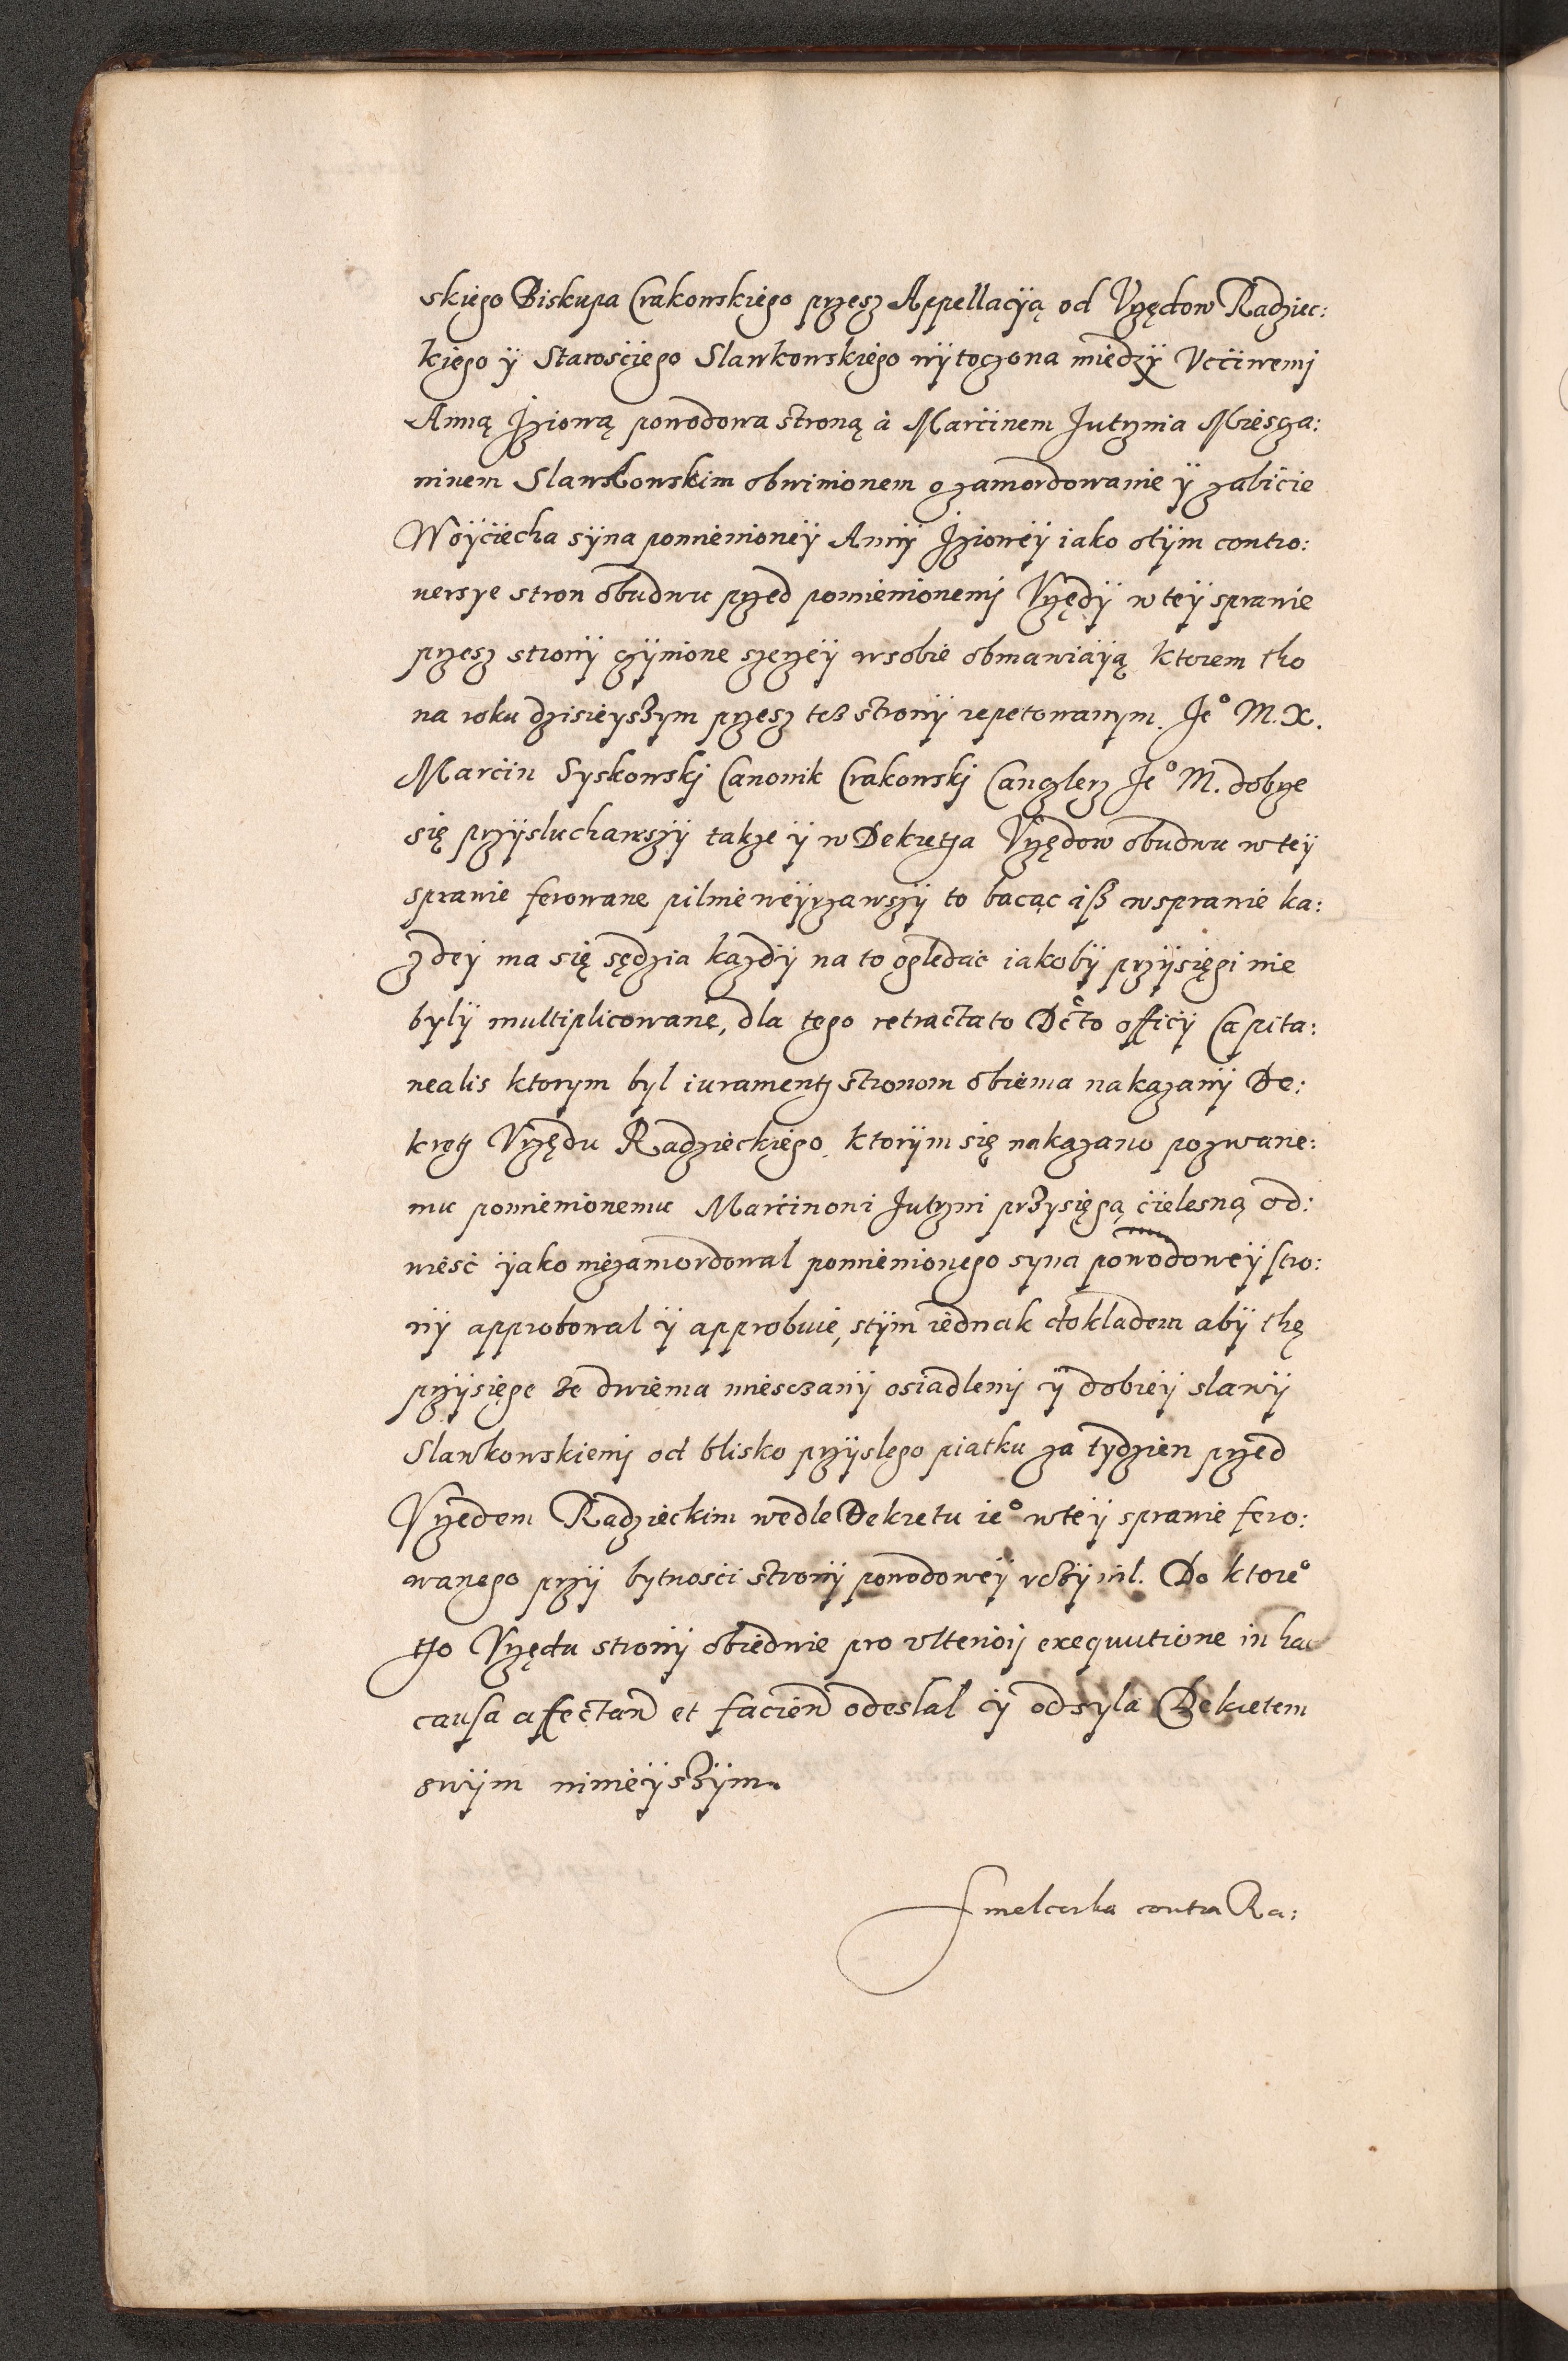 skiego Biskupa Crakowskiego przesz Appellacÿą od Vrzędow Radziec:
kiego ÿ Starosciego Slawkowskiego wÿtoczona miedzÿ Vcciwemj
Anną Jziową powodowa stroną á Marcinem Jutrznia Miescza:
ninem Slawkowskim obwinionem o zamordowanie ÿ zabicie
Woÿciecha sÿna pomienioneÿ Annÿ Jzioweÿ iako otÿm contro:
uersye stron obudwu przed pomienionemj Vrzędÿ w teÿ sprawie
przesz stronÿ czÿnione szerzeÿ w sobie obmawiaÿą ktorem tho
na roku dzisieyszym przesz tesz stronÿ repetowanym. Jeº M. X.
Marcin Syskowskj Canonik Crakowskj Canczlerz Jeº M. dobrze
się przÿsluchawszÿ takze ÿ w Dekretha Vrzędow obudwu w teÿ
sprawie ferowane pilnie weÿrzawszÿ to bacąc isz w sprawie ka:
zdeÿ ma się sędzia kazdÿ na to ogledac iakobÿ przÿsięgi nie
bylÿ multiplicowane, dla tego retractato Dcto officÿ Capita:
nealis ktorym byl iurament stronom obiema nakazanÿ De:
kret Vrzędu Radzieckiego ktorÿm się nakazano pozwane:
mu pomienionemu Marcinowi Jutrzni przysięgą cielesną od:
wiesć ÿako niezamordowal pomienionego syna powodoweÿ stro:
nÿ approbowal ÿ approbuie, s tÿm iednak dokladem abÿ thę
przÿsięge ze dwiema miesczanÿ osiadlemj ÿ dobreÿ slawÿ
Slawkowskiemj od blisko przÿslego piatku za tydzien przed
Vrzedem Radzieckim wedle Dekretu ieº w teÿ sprawie fero:
wanego przÿ bytnosci stronÿ powodoweÿ vczÿnil. Do ktoreº
tho Vrzędu stronÿ obiedwie pro vlteriorj exequutione in hac
causa affectan et facien odeslal ÿ odsyla Dekretem
swÿm ninieÿszÿm.
Smelcerka contra Ra: